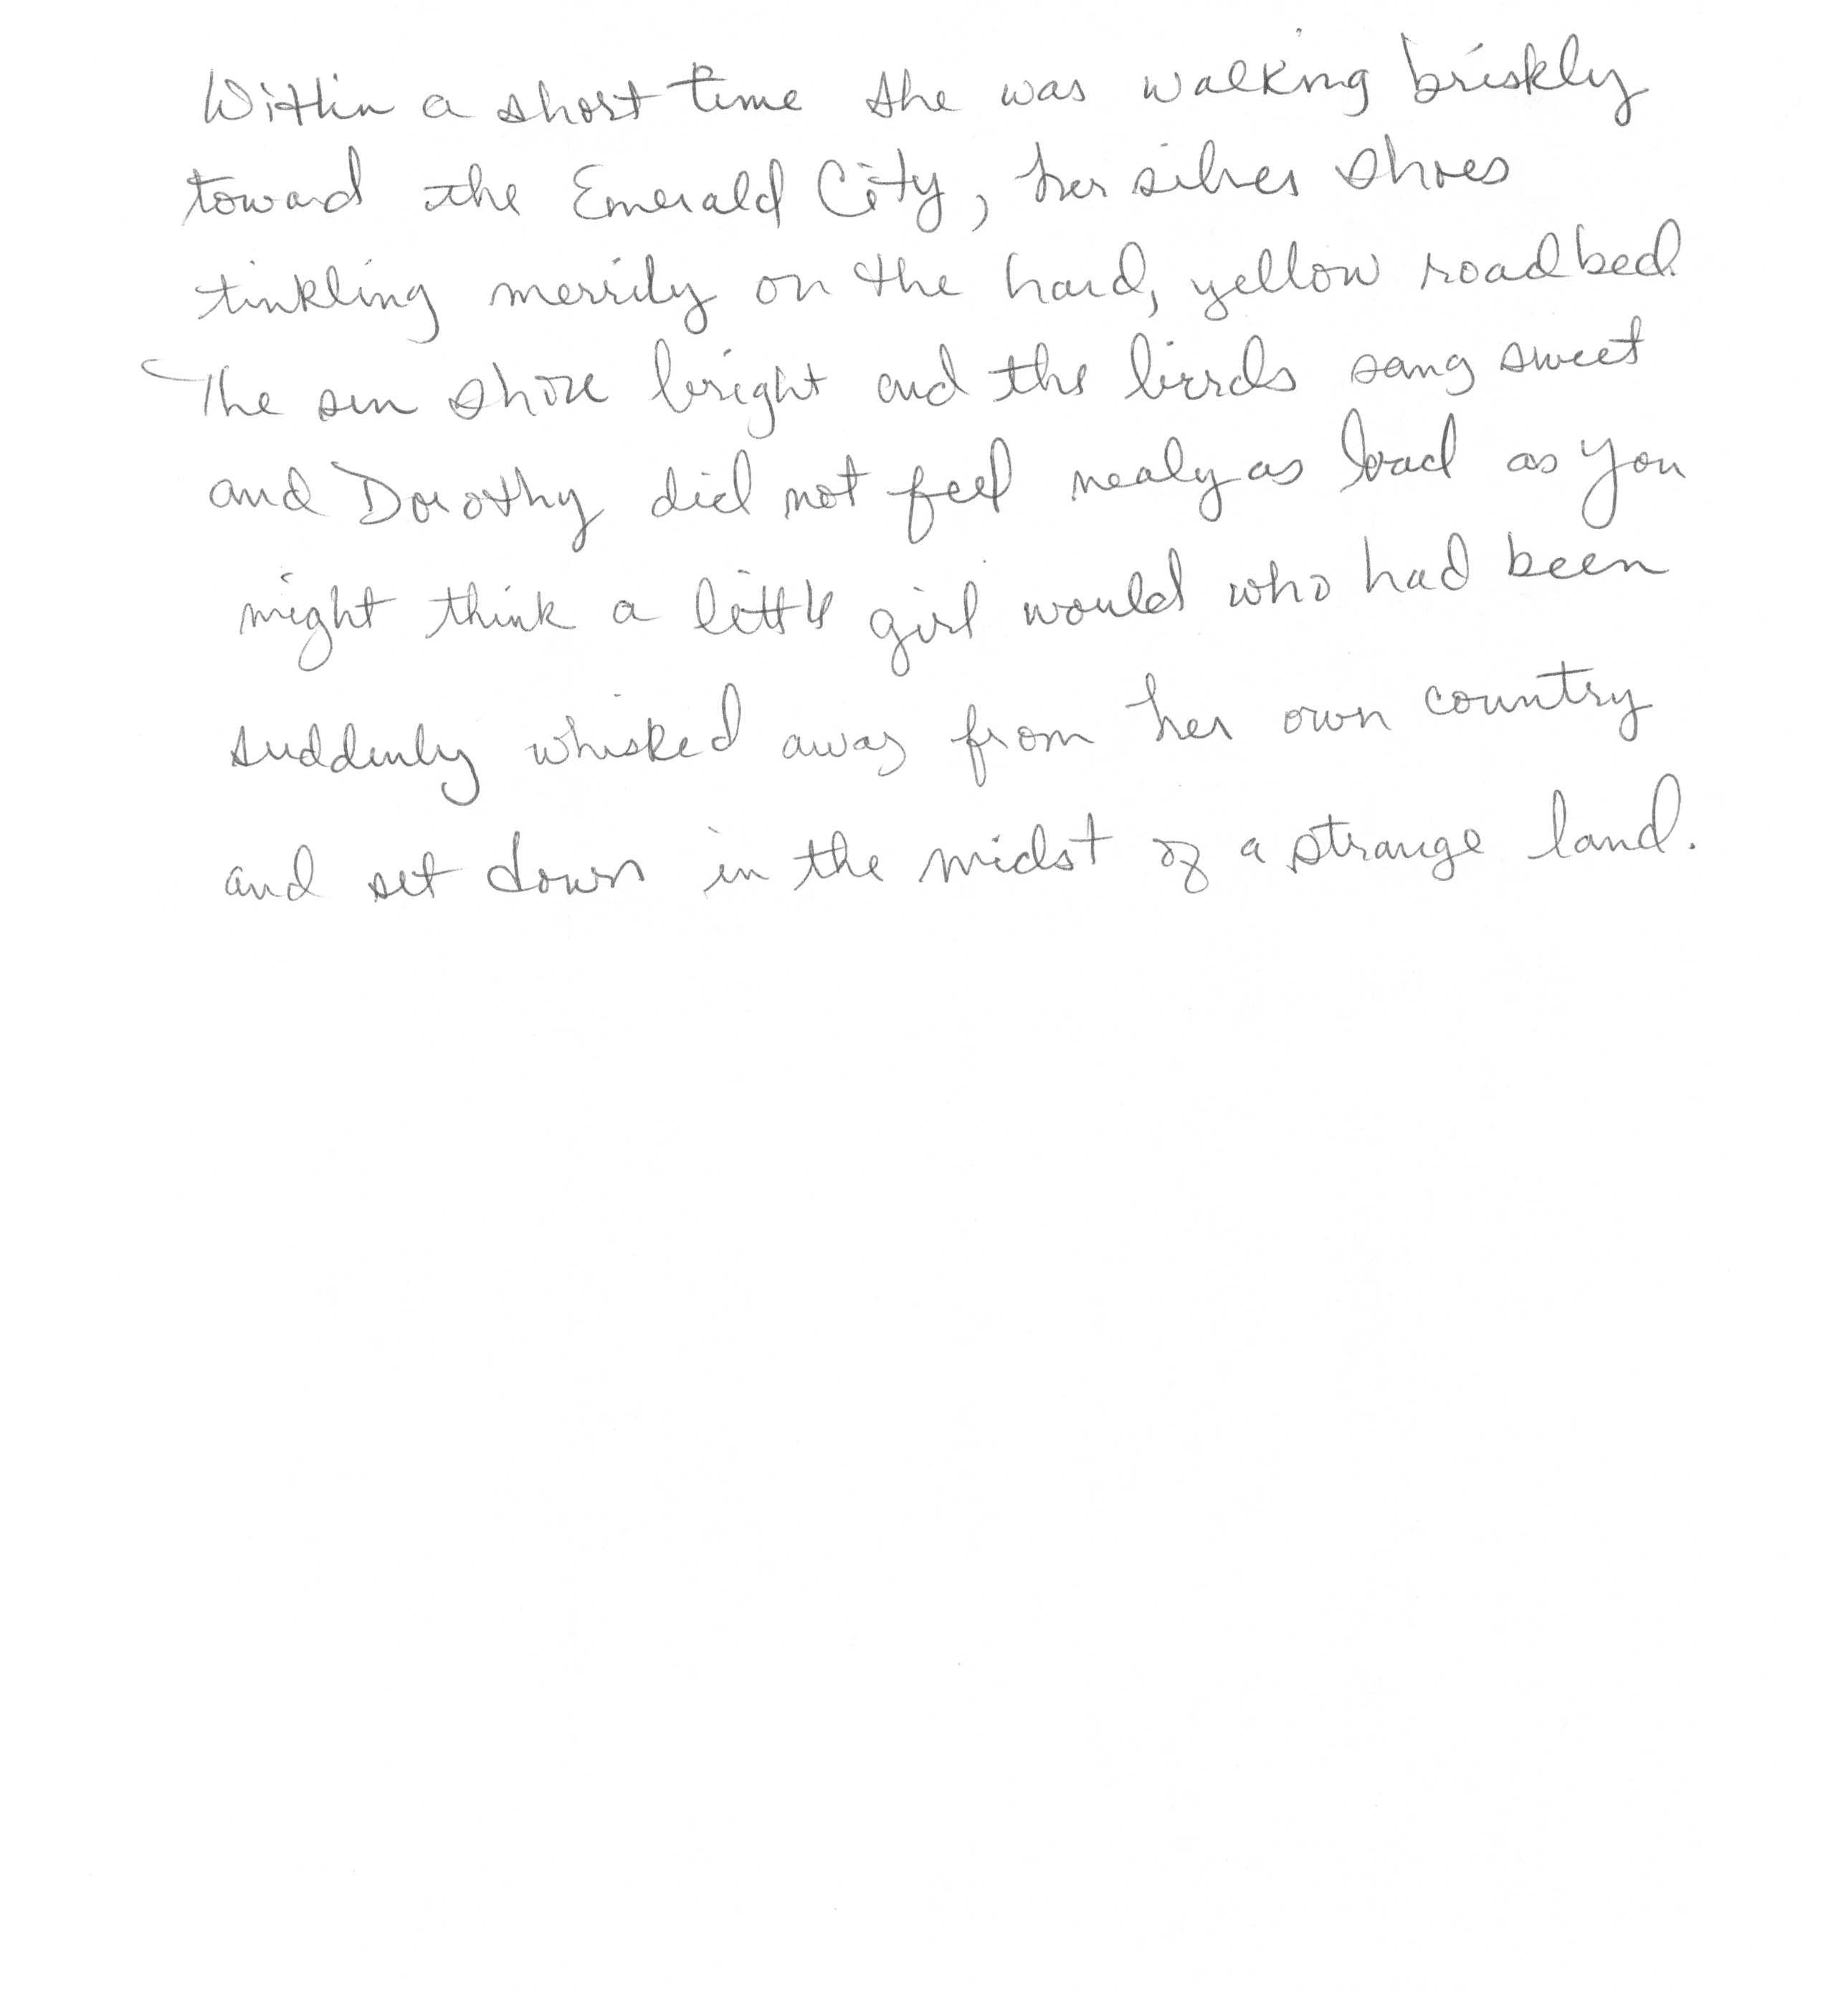 Within a short time she was walking briskly
toward the Emerald City, her silver shoes
tinkling merrily on the hard, yellow roadbed.
The sun shone bright and the birds sang sweet
and Dorothy did not feel nealy as bad as you
might think a little girl would who had been
suddenly whisked away from her own country
and set down in the midst of a strange land.